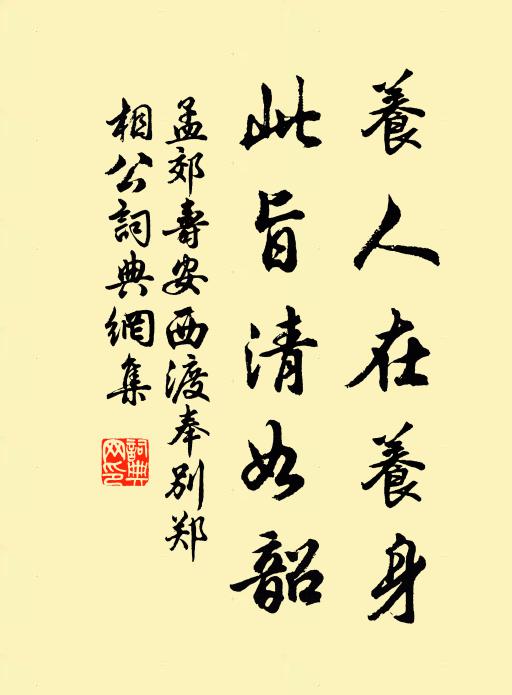 養人在養身
此旨清如韶
孟郊壽安西渡奉別郑
相公詞典網集
詞典
网印